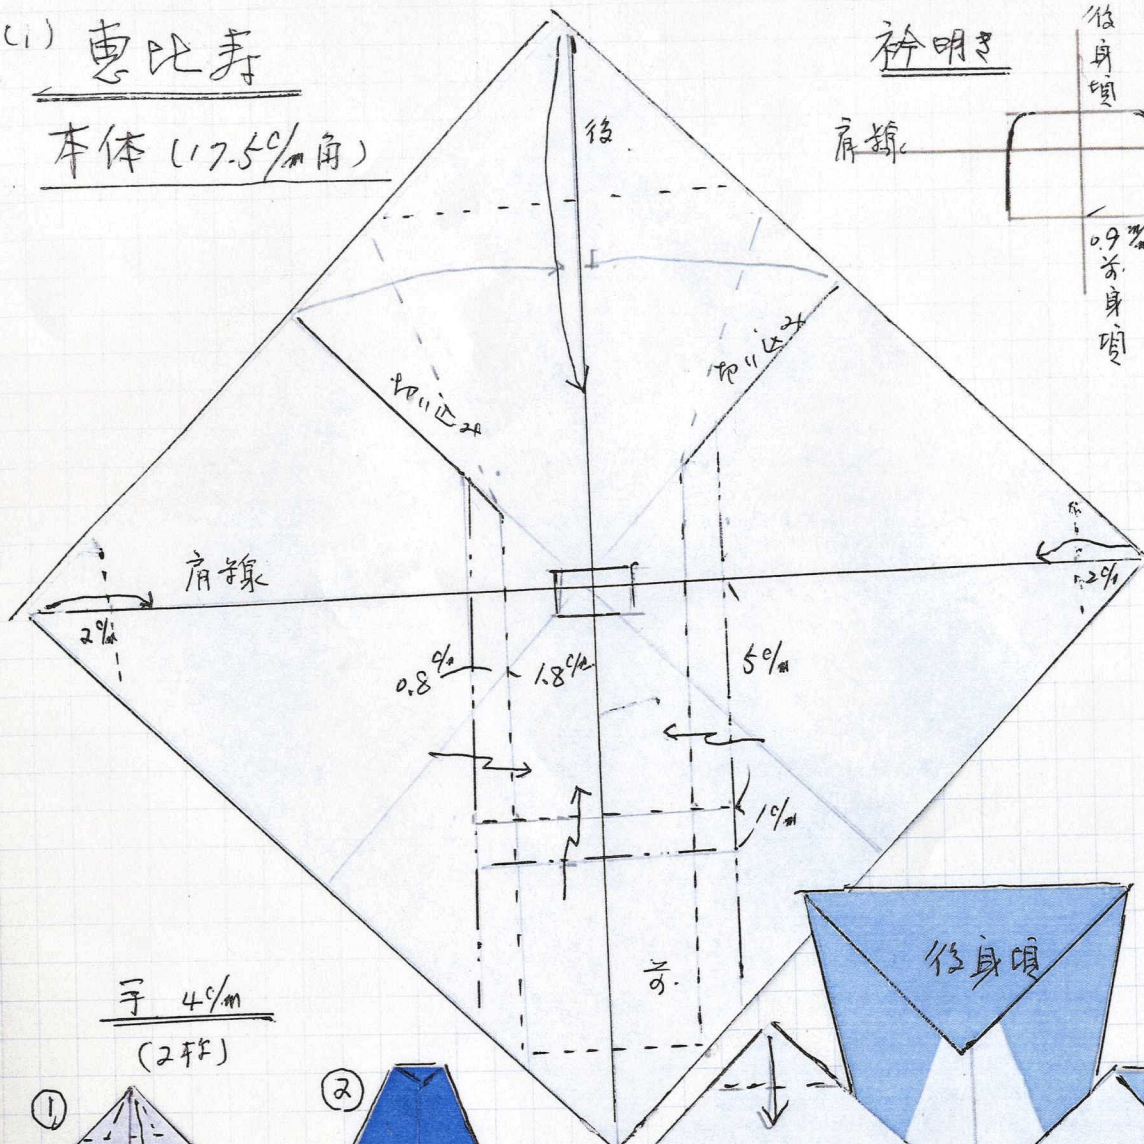 (1) 恵比寿
本体 (17.5c/m角)
衿明き
後身頃
肩線
0.9
前身頃
後
切り込み
切り込み
肩線
2c/m
2c/m
0.8c/m
1.8c/m
5c/m
1c/m
前
後身頃
手 4c/m
(2枚)
①
②